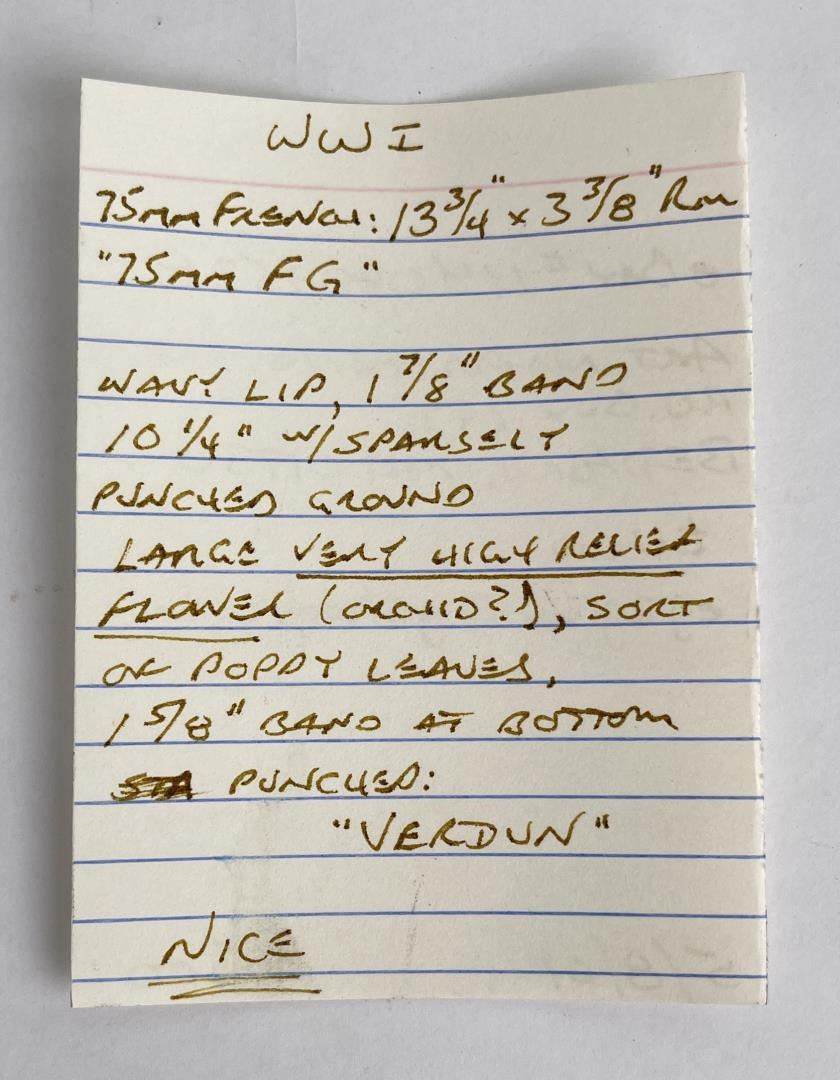 WWI
75mm FRENCH: 13 3/4" x 3 3/8" Rim
"75mm FG"
WAVY LIP, 1 7/8" BAND
10 1/4" W/SPARSELY
PUNCHED GROUND
LARGE VERY HIGH RELIEF
FLOWER (ORCHID?), SORT
OF POPPY LEAVES,
1 5/8" BAND AT BOTTOM
PUNCHED:
"VERDUN"
NICE